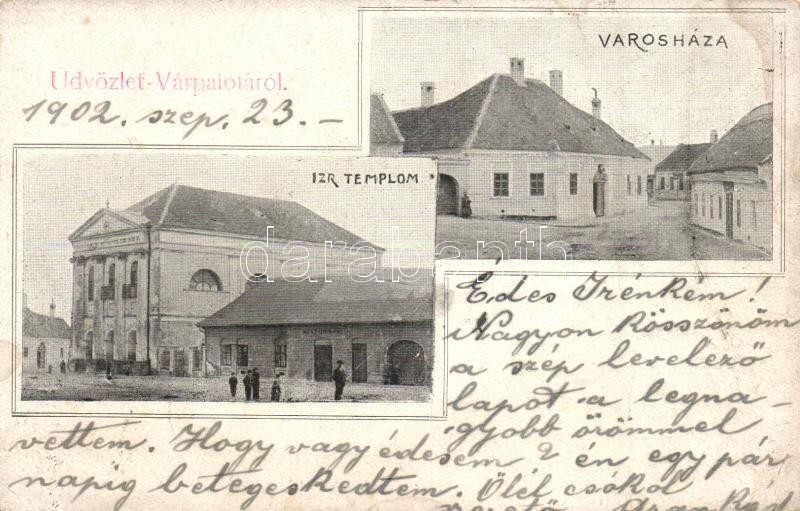 VAROSHÁZA
Üdvözlet-Várpalotáról.
1902. szep. 23.–
IZR TEMPLOM
darabanth
Édes Irénkém!
Nagyon Kösszönöm
a szép levelező
lapot a legna-
gyobb örömmel
vettem. Hogy vagy édesem? én egy pár
napig betegeskedtem. Ölel csókol
szerető